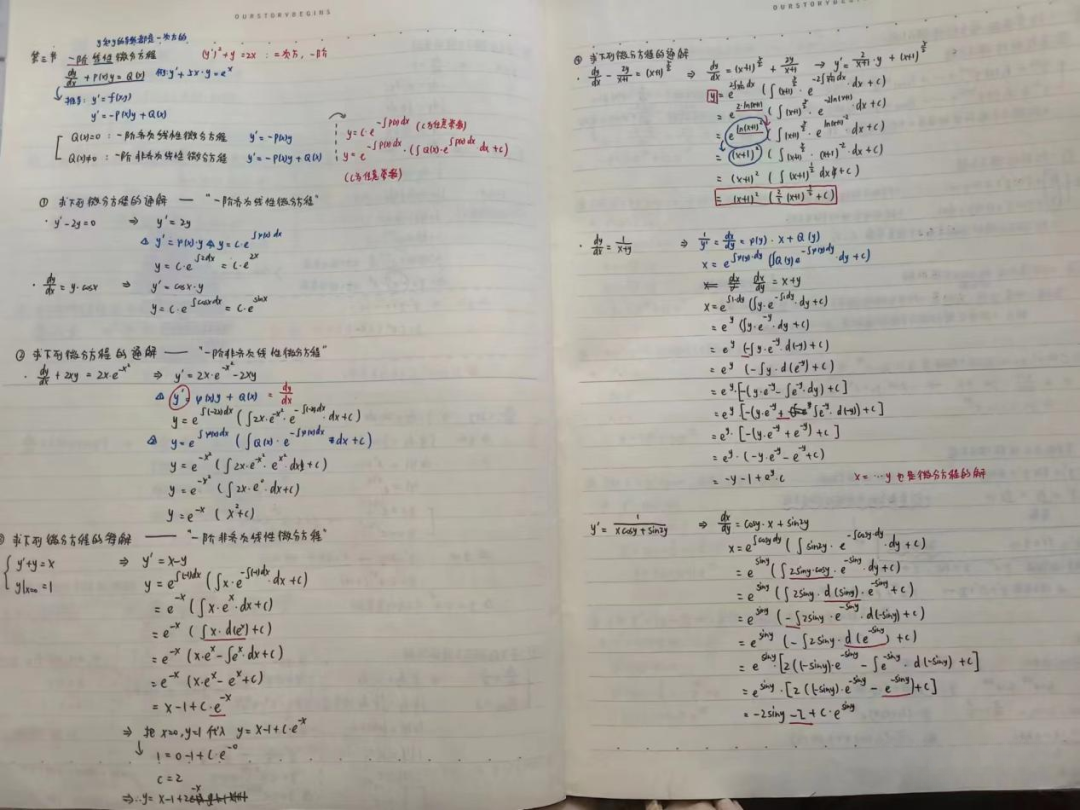 OURSTORYBEGINS
y和y的导数都是一次方的
第三节 一阶线性微分方程 (y')²+y=2x : 二次方,一阶
dy/dx + P(x)y = Q(x) 例: y'+5x·y=e^x
推导: y'=f(x,y)
y'=-P(x)y+Q(x)
Q(x)=0 : 一阶齐次线性微分方程 y'=-P(x)y
Q(x)≠0 : 一阶非齐次线性微分方程 y'=-P(x)y+Q(x)
y=c·e^{-∫P(x)dx} (c为任意常数)
y=e^{-∫P(x)dx}·(∫Q(x)·e^{∫P(x)dx} dx+c)
(c为任意常数)
① 求下列微分方程的通解 —— "一阶齐次线性微分方程"
· y'-2y=0 ⇒ y'=2y
△ y'=P(x)·y △ y=c·e^{∫P(x)dx}
y=c·e^{∫2dx}=c·e^{2x}
· dy/dx=y·cosx ⇒ y'=cosx·y
y=c·e^{∫cosxdx}=c·e^{sinx}
② 求下列微分方程的通解 —— "一阶非齐次线性微分方程"
· dy/dx+2xy=2x·e^{-x²} ⇒ y'=2x·e^{-x²}-2xy
△ y'=P(x)y+Q(x)=dy/dx
y=e^{∫(-2x)dx}(∫2x·e^{-x²}·e^{-∫(-2x)dx}·dx+c)
△ y=e^{∫P(x)dx}(∫Q(x)·e^{-∫P(x)dx}·dx+c)
y=e^{-x²}(∫2x·e^{-x²}·e^{x²}·dx+c)
y=e^{-x²}(∫2x·e^0·dx+c)
y=e^{-x}(x²+c)
求下列微分方程的特解 —— "一阶非齐次线性微分方程"
{ y'+y=x ⇒ y'=x-y
y|x=0=1 y=e^{∫(-1)dx}(∫x·e^{-∫(-1)dx}·dx+c)
=e^{-x}(∫x·e^x·dx+c)
=e^{-x}(∫x·d(e^x)+c)
=e^{-x}(x·e^x-∫e^x·dx+c)
=e^{-x}(x·e^x-e^x+c)
=x-1+c·e^{-x}
⇒ 把x=0,y=1代入 y=x-1+c·e^{-x}
1=0-1+c·e^{-0}
c=2
⇒∴y=x-1+2e^{-x}
OURSTORYBEGINS
④ 求下列微分方程的通解
· dy/dx-2y/(x+1)=(x+1)^{5/2} ⇒ dy/dx=(x+1)^{5/2}+2y/(x+1) → y'=2/(x+1)·y+(x+1)^{5/2}
y=e^{2∫1/(x+1)dx}(∫(x+1)^{5/2}·e^{-2∫1/(x+1)dx}·dx+c)
=e^{2·ln(x+1)}(∫(x+1)^{5/2}·e^{-2ln(x+1)}·dx+c)
=e^{ln(x+1)²}(∫(x+1)^{5/2}·e^{ln(x+1)^{-2}}·dx+c)
=(x+1)²(∫(x+1)^{5/2}·(x+1)^{-2}·dx+c)
=(x+1)²(∫(x+1)^{1/2}dx+c)
=(x+1)²(2/3(x+1)^{3/2}+c)
· dy/dx=1/(x+y) ⇒ 1/y'=dx/dy=P(y)·x+Q(y)
x=e^{∫P(y)·dy}(∫Q(y)e^{-∫P(y)dy}·dy+c)
dx/dy=x+y
x=e^{∫1·dy}(∫y·e^{-∫1·dy}·dy+c)
=e^y(∫y·e^{-y}·dy+c)
=e^y(-∫y·e^{-y}·d(-y)+c)
=e^y(-∫y·d(e^{-y})+c)
=e^y·[-(y·e^{-y}-∫e^{-y}·dy)+c]
=e^y[-(y·e^{-y}+∫e^{-y}·d(-y))+c]
=e^y·[-(y·e^{-y}+e^{-y})+c]
=e^y·(-y·e^{-y}-e^{-y}+c)
=-y-1+e^y·c x=…y也是微分方程的解
y'=1/(xcosy+sin2y) ⇒ dx/dy=cosy·x+sin2y
x=e^{∫cosydy}(∫sin2y·e^{-∫cosy·dy}·dy+c)
=e^{siny}(∫2siny·cosy·e^{-siny}·dy+c)
=e^{siny}(∫2siny·d(siny)·e^{-siny}+c)
=e^{siny}(-∫2siny·e^{-siny}·d(-siny)+c)
=e^{siny}(-∫2siny·d(e^{-siny})+c)
=e^{siny}·[2((-siny)·e^{-siny}-∫e^{-siny}·d(-siny)+c]
=e^{siny}·[2((-siny)·e^{-siny}-e^{-siny})+c]
=-2siny-2+c·e^{siny}